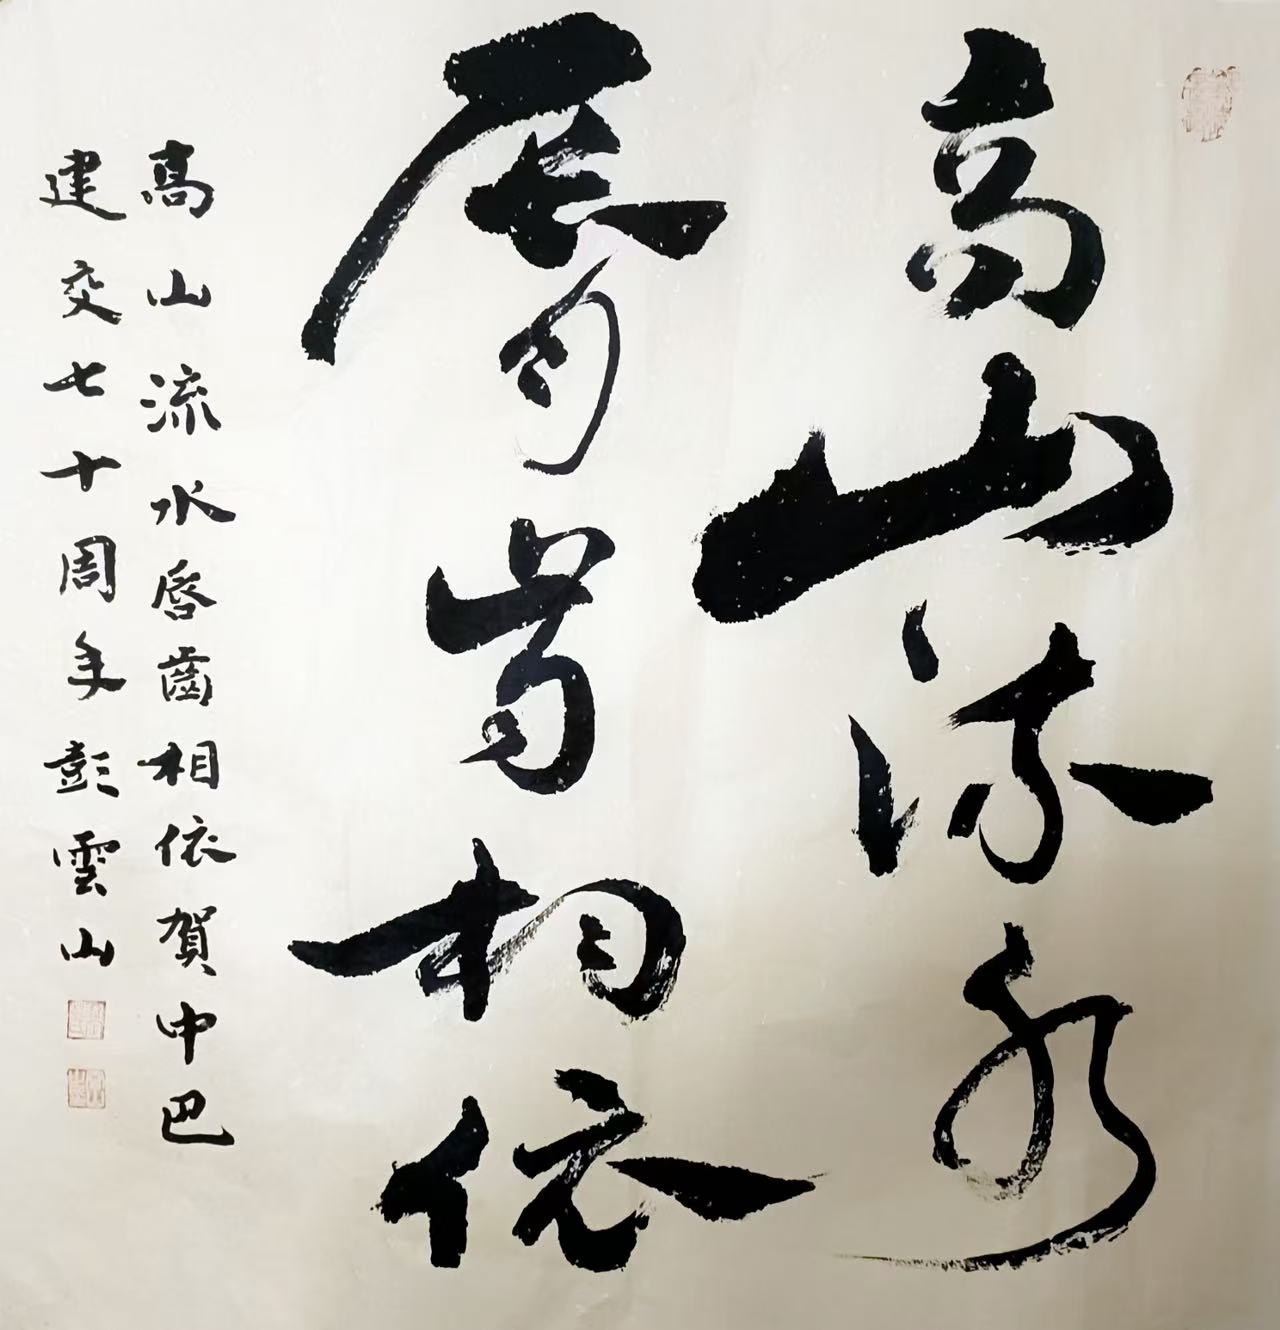 高山流水
唇齒相依
高山流水唇齒相依賀中巴
建交七十周年彭雲山